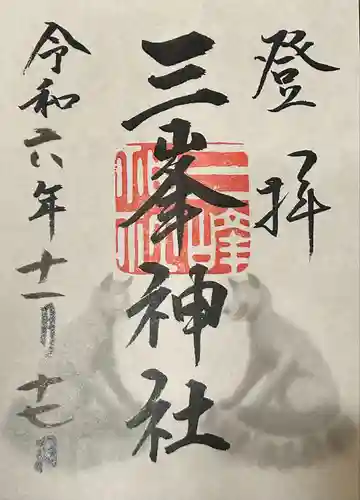 登拝
三峯神社
令和六年十一月十七日